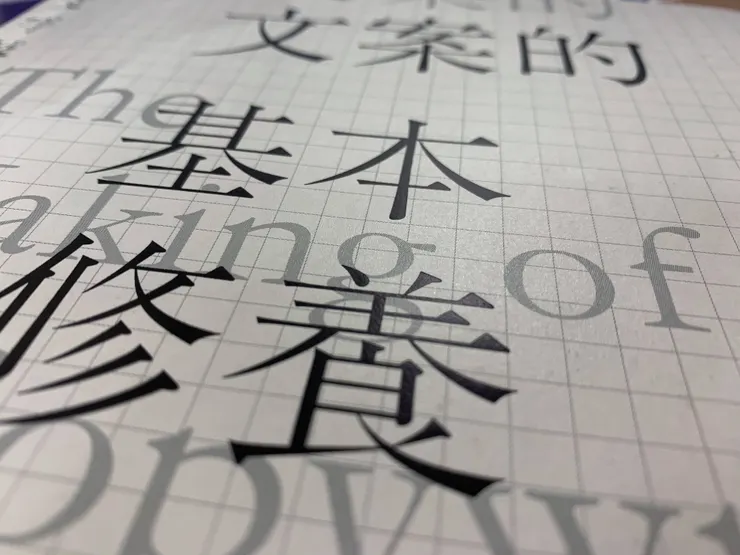 文案的
The
基本
aking of
修養
opyw